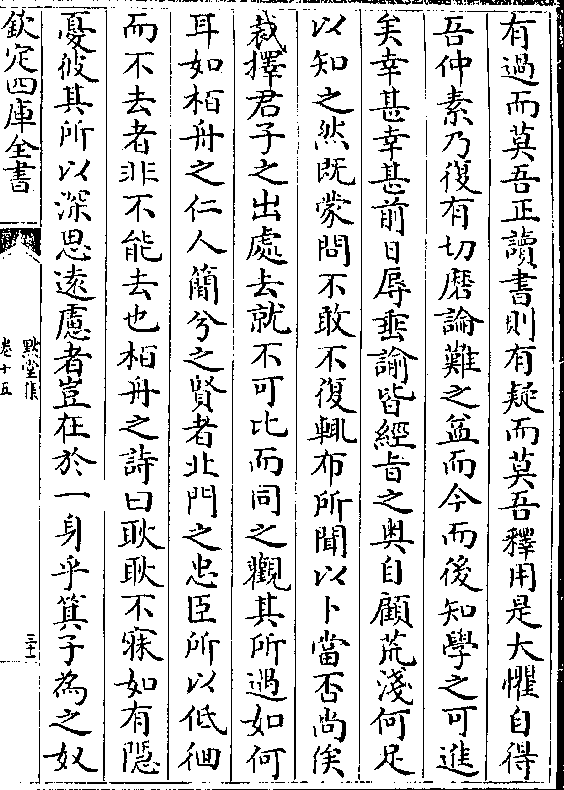 有過而莫吾正讀書則有疑而莫吾釋用是大懼自得
吾仲素乃復有切磨論難之益而今而後知學之可進
矣幸甚幸甚前日辱垂諭皆經旨之奥自顧荒淺何足
以知之然既蒙問不敢不復輒布所聞以卜當否尚俟
裁擇君子之出處去就不可比而同之觀其所遇如何
耳如栢舟之仁人簡兮之賢者北門之忠臣所以低徊
而不去者非不能去也栢舟之詩曰耿耿不寐如有隱
憂彼其所以深思遠慮者豈在於一身乎箕子為之奴
欽定四庫全書
默堂集
卷十五
三十一